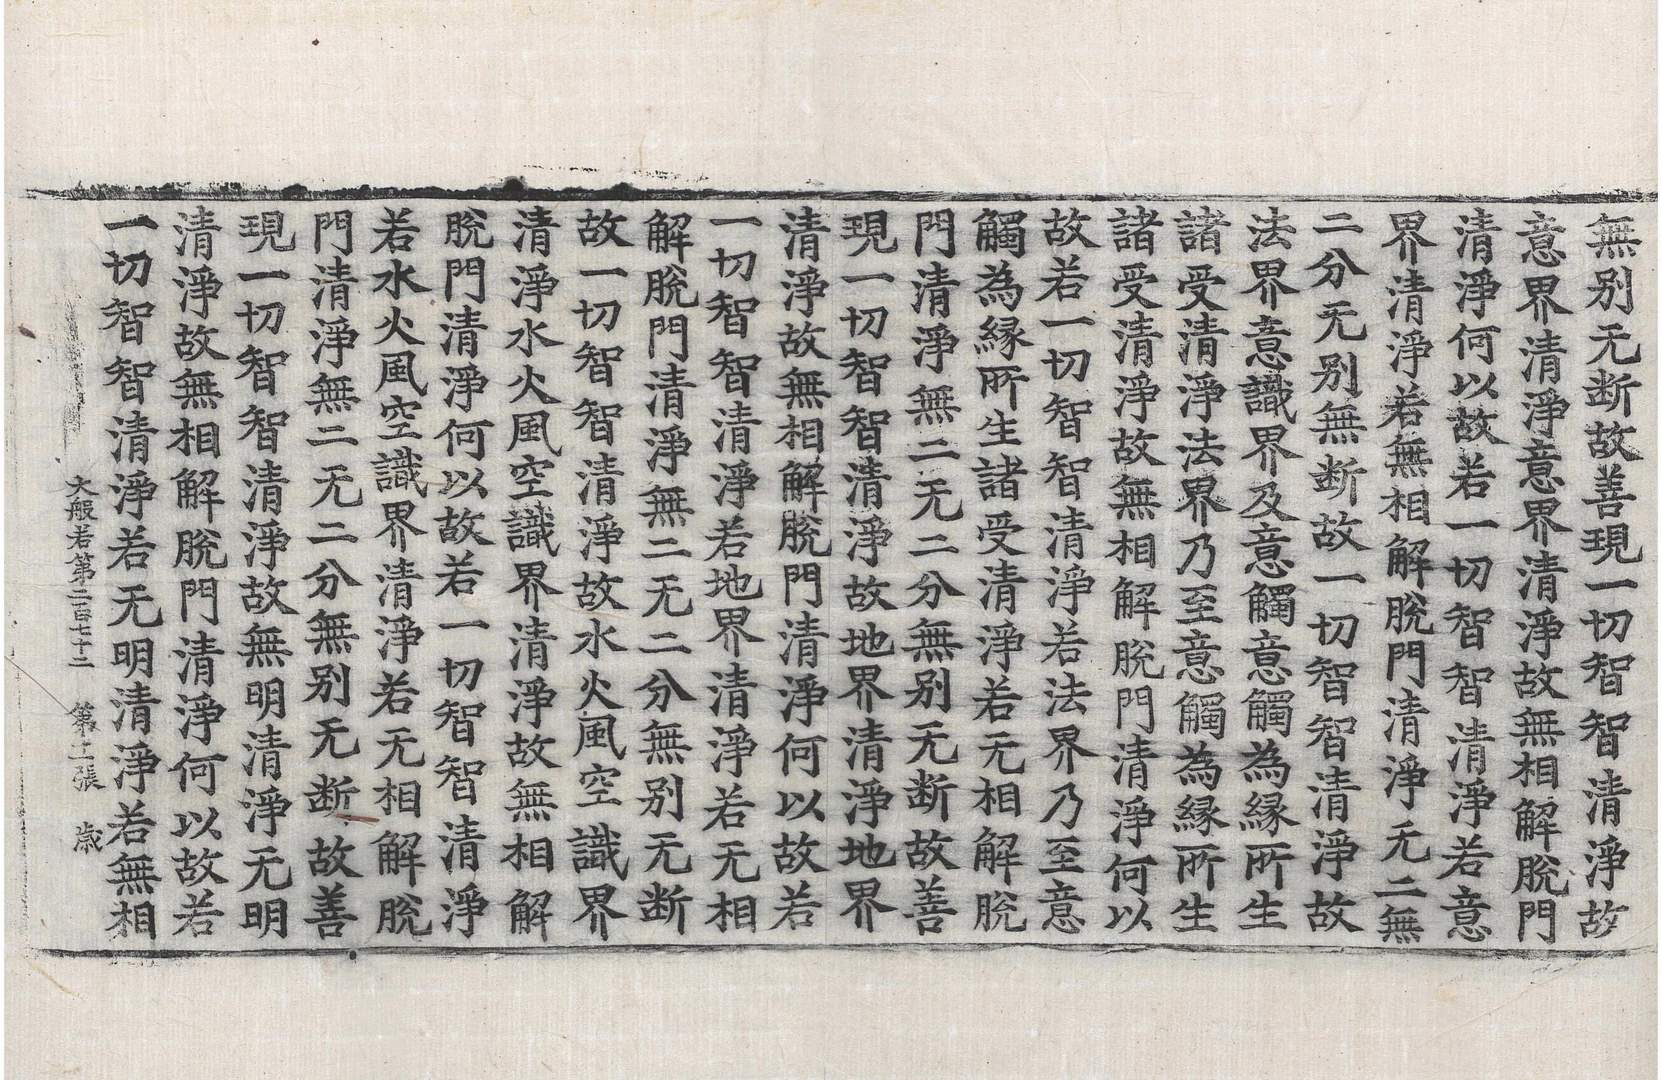 無別无断故善現一切智智清淨故
意界清淨意界清淨故無相解脫門
清淨何以故若一切智智清淨若意
界清淨若無相解脫門清淨无二無
二分无別無断故一切智智清淨故
法界意識界及意觸意觸為縁所生
諸受清淨法界乃至意觸為縁所生
諸受清淨故無相解脫門清淨何以
故若一切智智清淨若法界乃至意
觸為縁所生諸受清淨若无相解脫
門清淨無二无二分無別无断故善
現一切智智清淨故地界清淨地界
清淨故無相解脫門清淨何以故若
一切智智清淨若地界清淨若无相
解脫門清淨無二无二分無別无断
故一切智智清淨故水火風空識界
清淨水火風空識界清淨故無相解
脫門清淨何以故若一切智智清淨
若水火風空識界清淨若无相解脫
門清淨無二无二分無別无断故善
現一切智智清淨故無明清淨无明
清淨故無相解脫門清淨何以故若
一切智智清淨若无明清淨若無相
大般若第二百七十二 第十二張 歲